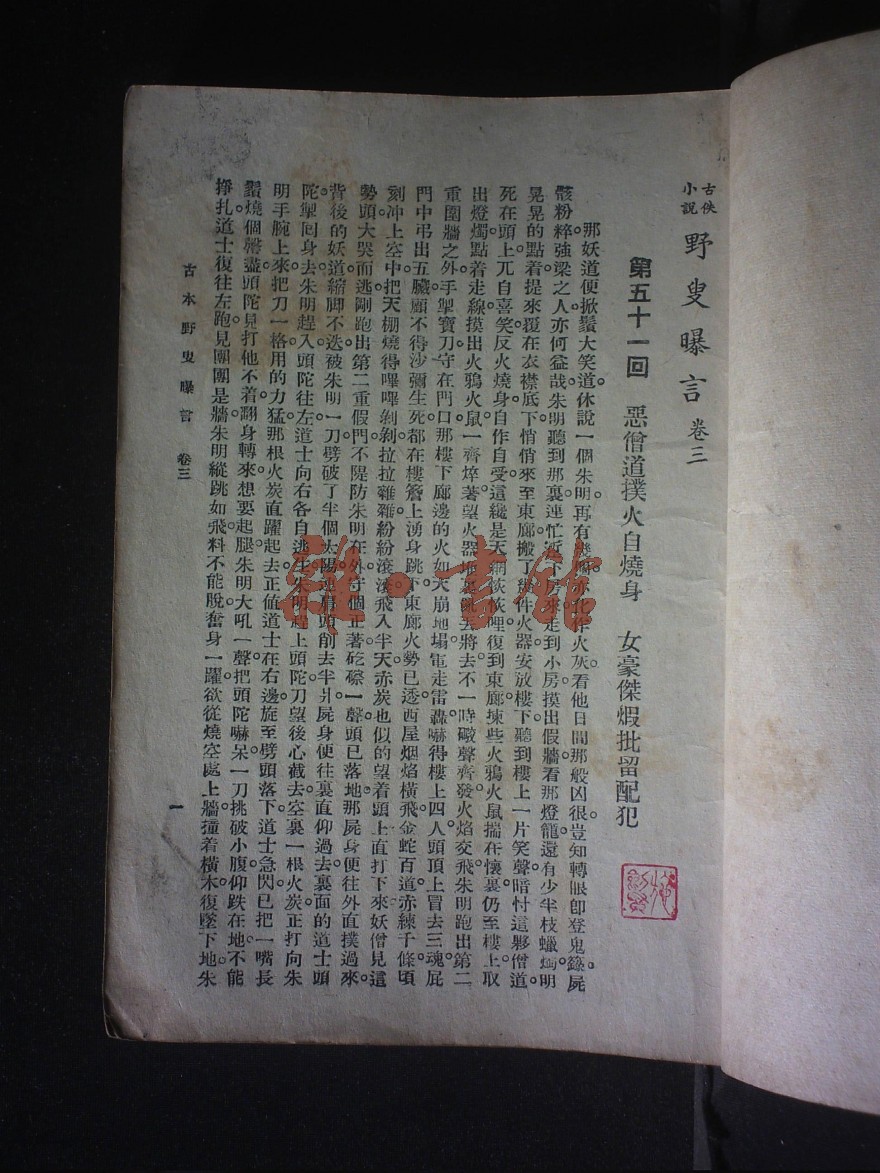 古俠小說 野叟曝言 卷三
第五十一回 惡僧道撲火自燒身 女豪傑煆批留配犯
那妖道便掀鬚大笑道。休說一個朱明。再有幾個亦化作火灰。看他日間那般凶很。豈知轉眼卽登鬼籙。屍
骸粉粹。強梁之人。亦何益哉。朱明聽到那裏。連忙下房來。走到小房。摸出假牆。看那燈籠。還有少半枝蠟燭。明
晃晃的點着。提來覆在衣襟底下。悄悄來至東廊。搬了幾件火器。安放樓下。聽到樓上一片笑聲。暗忖這夥僧道
死在頭上。兀自喜笑。反火燒身。自作自受。這纔是天網恢恢哩。復到東廊。揀些火鴉火鼠。揣在懷裏。仍至樓上。取
出燈燭。點着走線。摸出火鴉火鼠。一齊焠著。望火器堆裏亂丟將去。不一時礮聲齊發。火焰交飛。朱明跑出第二
重圍牆之外。手掣寶刀。守在門口。那樓下廊邊的火。如天崩地塌。電走雷轟。嚇得樓上四人。頭頂上冒去三魂。屁
門中弔出五臟。顧不得沙彌生死。都在樓簷上湧身跳下。東廊火勢。已透西屋。烟焰橫飛。金蛇百道。赤練千條。頃
刻冲上空中。把天棚燒得嗶嗶剝剝。拉拉雜雜。紛紛滾滾。飛入半天。赤炭也似的望着頭上直打下來。妖僧見這
勢頭。大哭而逃。剛跑出第二重假門。不隄防朱明在外。守個正著。矻磔一聲。頭已落地。那屍身便往外直撲過來。
背後的妖道縮脚不迭。被朱明一刀劈破了半個太陽。連肩頭削去半爿。屍身便往裏直仰過去。裏面的道士頭
陀掣回身去。朱明趕入。頭陀往左。道士向右。各自逃生。朱明趕上頭陀。刀望後心截去。空裏一根火炭。正打向朱
明手腕上來。把刀一格。用的力猛。那根火炭直躍起去。正値道士在右邊旋至。劈頭落下。道士急閃。已把一嘴長
鬚燒個罄盡。頭陀見打他不着。翻身轉來。想要起腿。朱明大吼一聲。把頭陀嚇呆。一刀挑破小腹。仰跌在地。不能
掙扎。道士復往左跑。見團團是牆。朱明縱跳如飛。料不能脫。奮身一躍。欲從燒空處上牆。撞着橫木。復墜下地。朱
古本野叟曝言 卷三
一
雜·書館